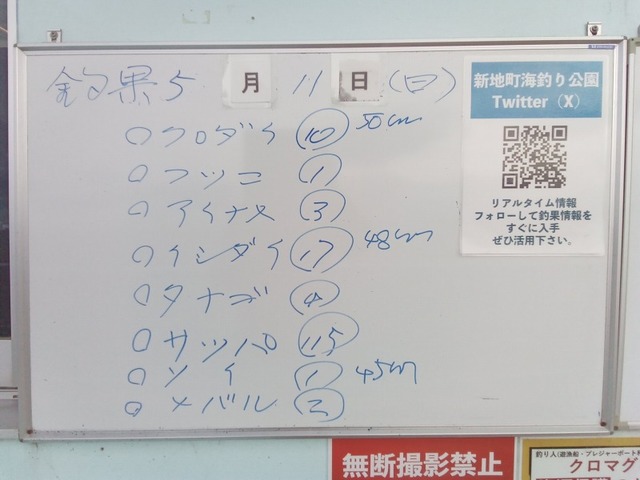 釣果 5 月 11 日 (日)
○ クロダイ ⑩ 50cm
○ フッコ ①
○ アイナメ ③
○ イシダイ ⑰ 48cm
○ タナゴ ④
○ サッパ 115
○ ソイ ① 45cm
○ メバル ②
新地町海釣り公園
Twitter（X）
リアルタイム情報
フォローして釣果情報を
すぐに入手
ぜひ活用下さい。
無断撮影禁止
釣り人(遊漁船・プレジャーボート
クロマグ